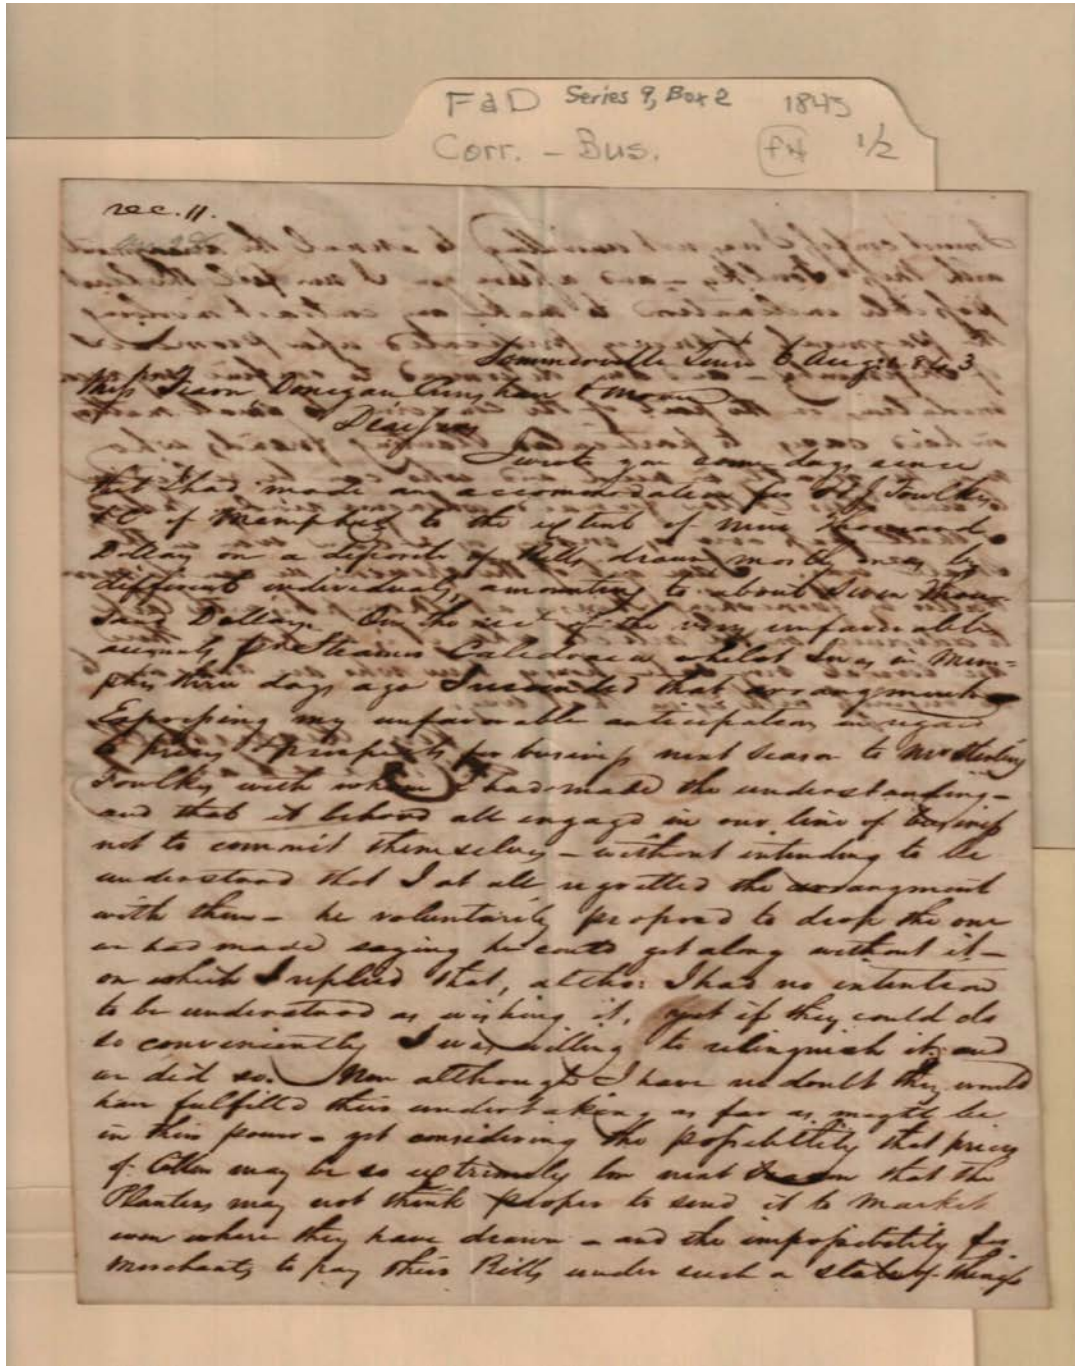 F&D Series 9, Box 2 1843
Corr. - Bus. 1/2
rec. 11.
Sommerville Tenn 6 Aug 1843
Mess Fearn Donegan &
Dear Sirs
I wrote you some days since
that I had made an accommodation for Foulkes
&C of Memphis to the extent of nine thousand
Dollars on a deposite of Bills drawn mostly by
different individuals, amounting to about Seven thou-
sand Dollars. On the rect of the very unfavorable
accounts pr Steamer Caledonia whilst I was in Mem-
phis three days ago I rescinded that arrangment
Expressing my unfavorable anticipations in regard
to prices & prospects for business next season to Mr Sterling
Foulkes with whom I had made the understanding -
and that it behoved all engaged in our line of business
not to commit themselves - without intending to be
understood that I at all regretted the arrangment
with them - he voluntarily proposed to drop the one
we had made saying he could get along without it -
on which I replied that, altho: I had no intention
to be understood as wishing it, yet if they could do
so conveniently I was willing to relinquish it and
we did so. Now although I have no doubt they would
have fulfilled their undertaking as far as might be
in their power - yet considering the possibility that prices
of Cotton may be so extremely low next season that the
Planters may not think proper to send it to market
even where they have drawn - and the impossibility for
merchants to pay their Bills under such a state of things